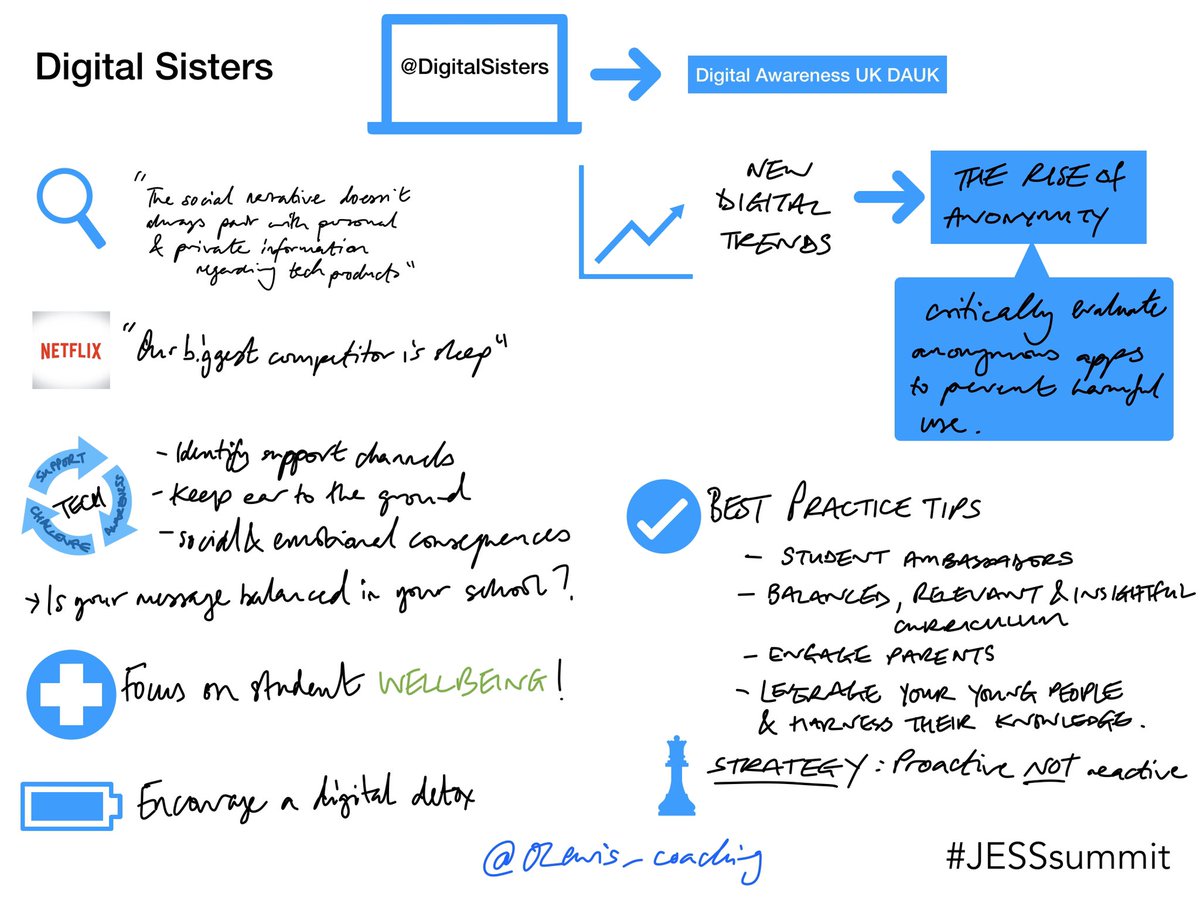 Digital Sisters
@DigitalSisters
Digital Awareness UK DAUK
"The social narrative doesn't
always pair with personal
& private information
regarding tech products"
NEW
DIGITAL
TRENDS
THE RISE OF
ANONYMITY
critically evaluate
anonymous apps
to prevent harmful
use.
NETFLIX
"Our biggest competitor is sleep"
SUPPORT
AWARENESS
CHALLENGE
TECH
- Identify support channels
- Keep ear to the ground
- Social & emotional consequences
→ Is your message balanced in your school?
Focus on student WELLBEING!
Encourage a digital detox
BEST PRACTICE TIPS
- STUDENT AMBASSADORS
- BALANCED, RELEVANT & INSIGHTFUL
CURRICULUM
- ENGAGE PARENTS
- LEVERAGE YOUR YOUNG PEOPLE
& HARNESS THEIR KNOWLEDGE.
STRATEGY: Proactive NOT reactive
#JESSsummit